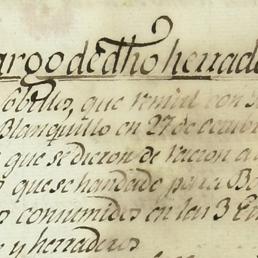 argo de dho herrade
obillos, que remitió con
Blanquillo en 27 de octubre
que se dieron de racion a
s que se han dado para la
os consumidos en las 3
s y herraderos